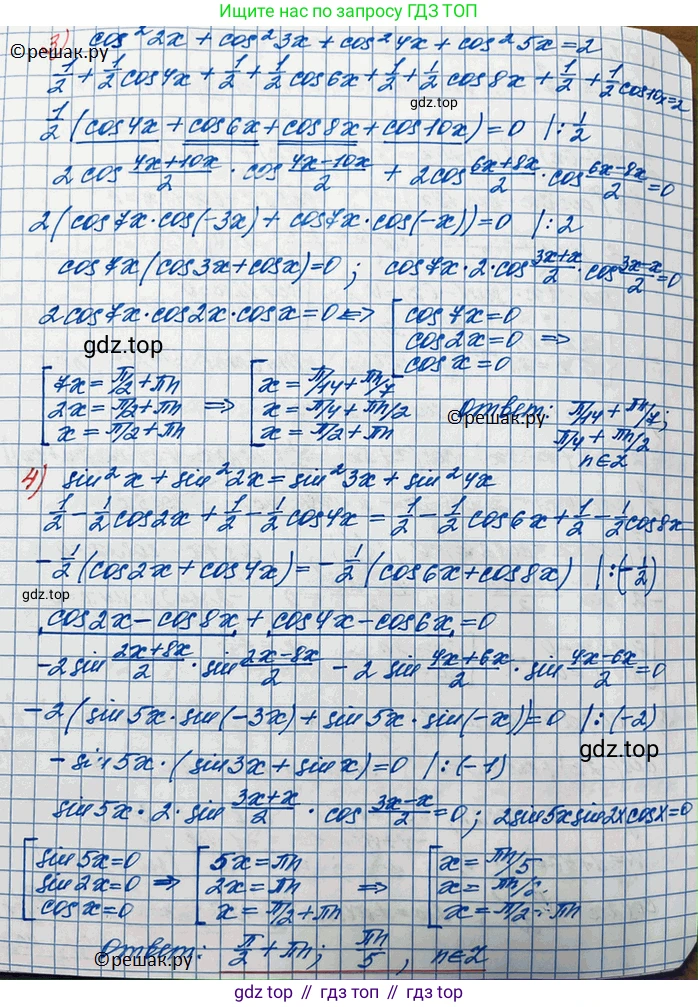 Нашёл ответ на сайте gdz.top
©reшак.ру
3) cos² 2x + cos² 3x + cos² 4x + cos² 5x = 2
1/2 + 1/2 cos4x + 1/2 + 1/2 cos6x + 1/2 + 1/2 cos8x + 1/2 + 1/2 cos10x = 2
gdz.top
1/2 (cos4x + cos6x + cos8x + cos10x) = 0 |: 1/2
2cos (4x+10x)/2 · cos (4x-10x)/2 + 2cos (6x+8x)/2 · cos (6x-8x)/2 = 0
2(cos7x·cos(-3x) + cos7x·cos(-x)) = 0 |: 2
cos7x(cos3x+cosx)=0 ; cos7x·2·cos (3x+x)/2 · cos (3x-x)/2 = 0
2cos7x·cos2x·cosx=0 <=> [ cos7x=0
cos2x=0 =>
cosx=0
gdz.top
[ 7x = π/2 + πn => [ x = π/14 + πn/7
2x = π/2 + πn x = π/4 + πn/2
x = π/2 + πn x = π/2 + πn
Ответ: π/14 + πn/7;
π/4 + πn/2
n∈Z
©решак.ру
4) sin² x + sin² 2x = sin² 3x + sin² 4x
1/2 - 1/2 cos2x + 1/2 - 1/2 cos4x = 1/2 - 1/2 cos6x + 1/2 - 1/2 cos8x
-1/2 (cos2x + cos4x) = -1/2 (cos6x + cos8x) |:(-1/2)
gdz.top
cos2x - cos8x + cos4x - cos6x = 0
-2sin (2x+8x)/2 · sin (2x-8x)/2 - 2 sin (4x+6x)/2 · sin (4x-6x)/2 = 0
-2(sin5x·sin(-3x) + sin5x·sin(-x)) = 0 |:(-2)
gdz.top
-sin5x·(sin3x + sinx) = 0 |:(-1)
sin5x·2·sin (3x+x)/2 · cos (3x-x)/2 = 0; 2sin5xsin2xcosx=0
[ sin5x=0 => [ 5x = πn => [ x = πn/5
sin2x=0 2x = πn x = πn/2
cosx=0 x = π/2 + πn x = π/2 + πn
Ответ: π/2 + πn; πn/5, n∈Z
©решак.ру
gdz.top // gdz.top // gdz.top // gdz.top